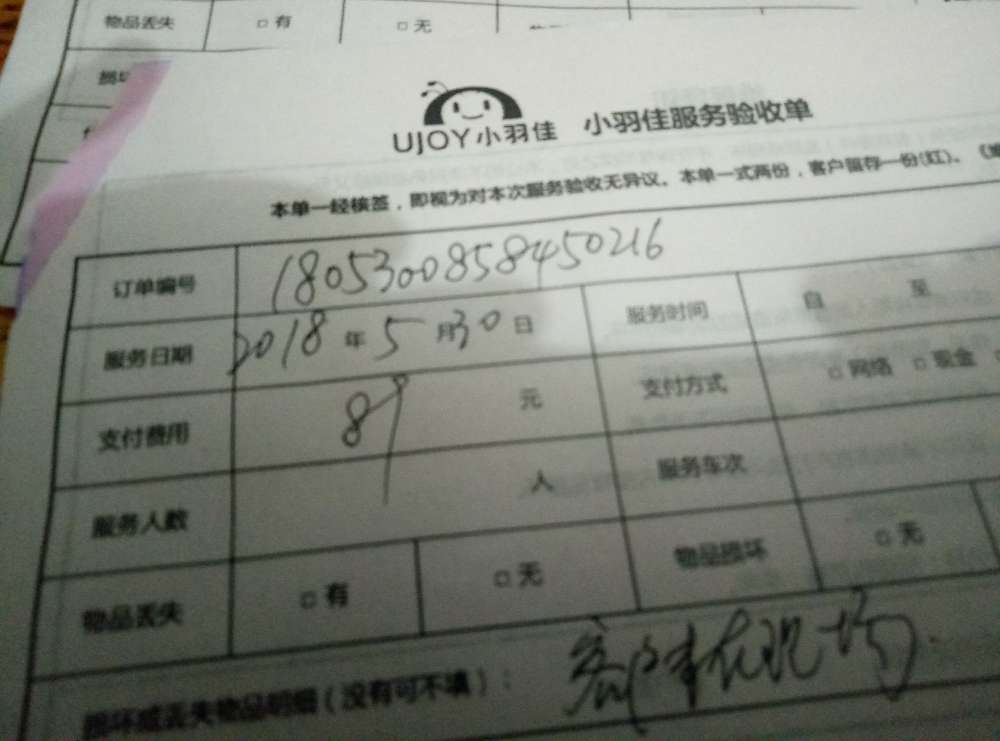 物品丢失 □ 有 □ 无
UJOY小羽佳 小羽佳服务验收单
本单一经核签，即视为对本次服务验收无异议。本单一式两份，客户留存一份(红)。
订单编号 1805300858450216
服务日期 2018 年 5 月 30 日 服务时间 自 至
支付费用 89 元 支付方式 □ 网络 □ 现金
服务人数 人 服务车次
物品丢失 □ 有 □ 无 物品损坏 □ 无
损坏或丢失物品明细（没有可不填）： 客户未在现场.